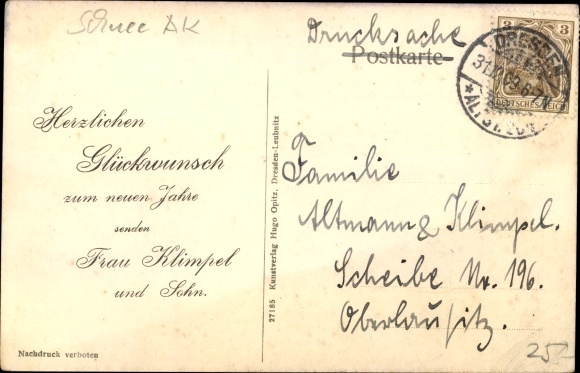 Schnee AK
Drucksache
Postkarte
3 3
DRESDEN
DEUTSCHES REICH
Herzlichen
Glückwunsch
zum neuen Jahre
senden
Frau Klimpel
und Sohn.
Nachdruck verboten
27185 Kunstverlag Hugo Opitz, Dresden-Leubnitz
Familie
Altmann & Klimpel.
Scheibe Nr. 196.
Oberlausitz.
25-